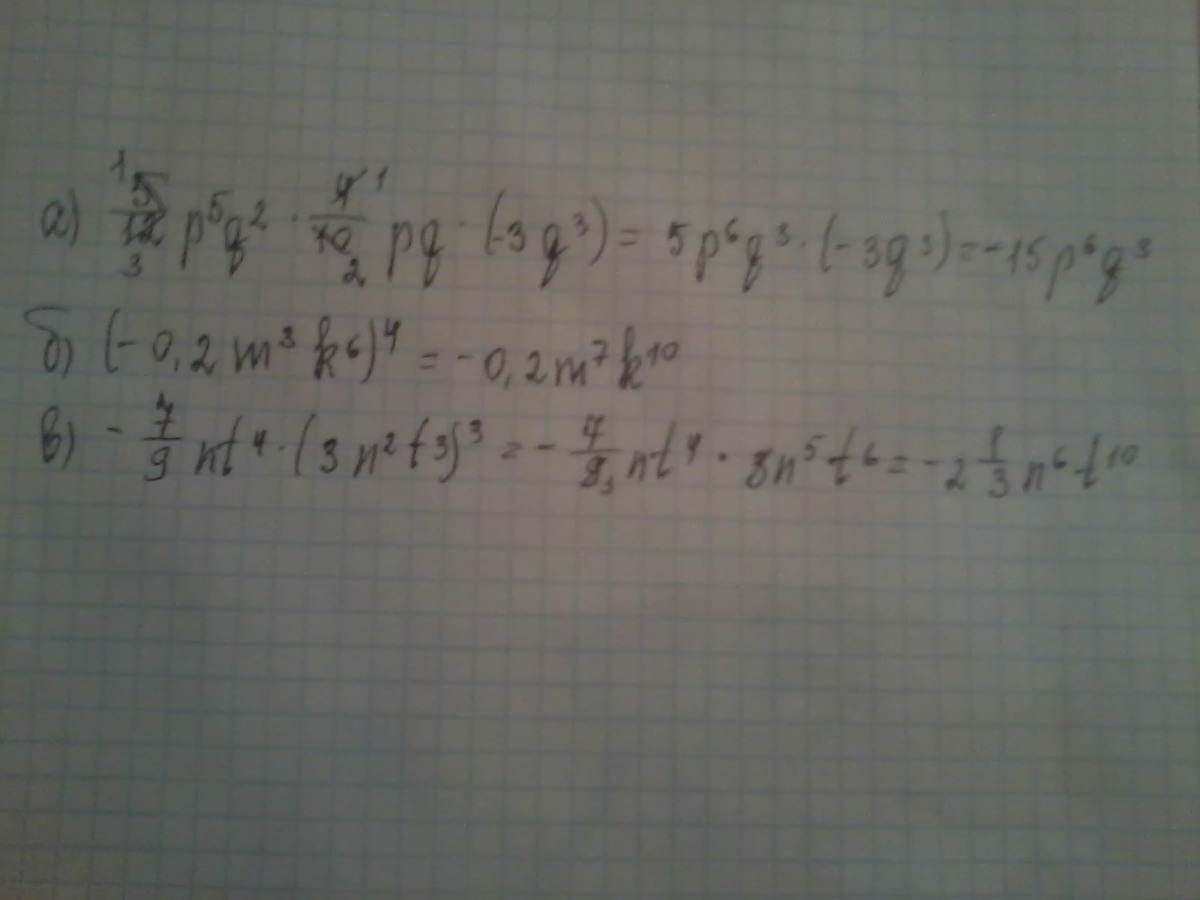 а) 5/12 p⁵q² · 4/10 pq · (-3q³) = 5p⁶q³ · (-3q³) = -15p⁶q³
б) (-0,2m³k⁶)⁴ = -0,2m⁷k¹⁰
в) - 7/9 nt⁴ · (3n²t³)³ = - 7/9 nt⁴ · 3n⁵t⁶ = -2 1/3 n⁶t¹⁰